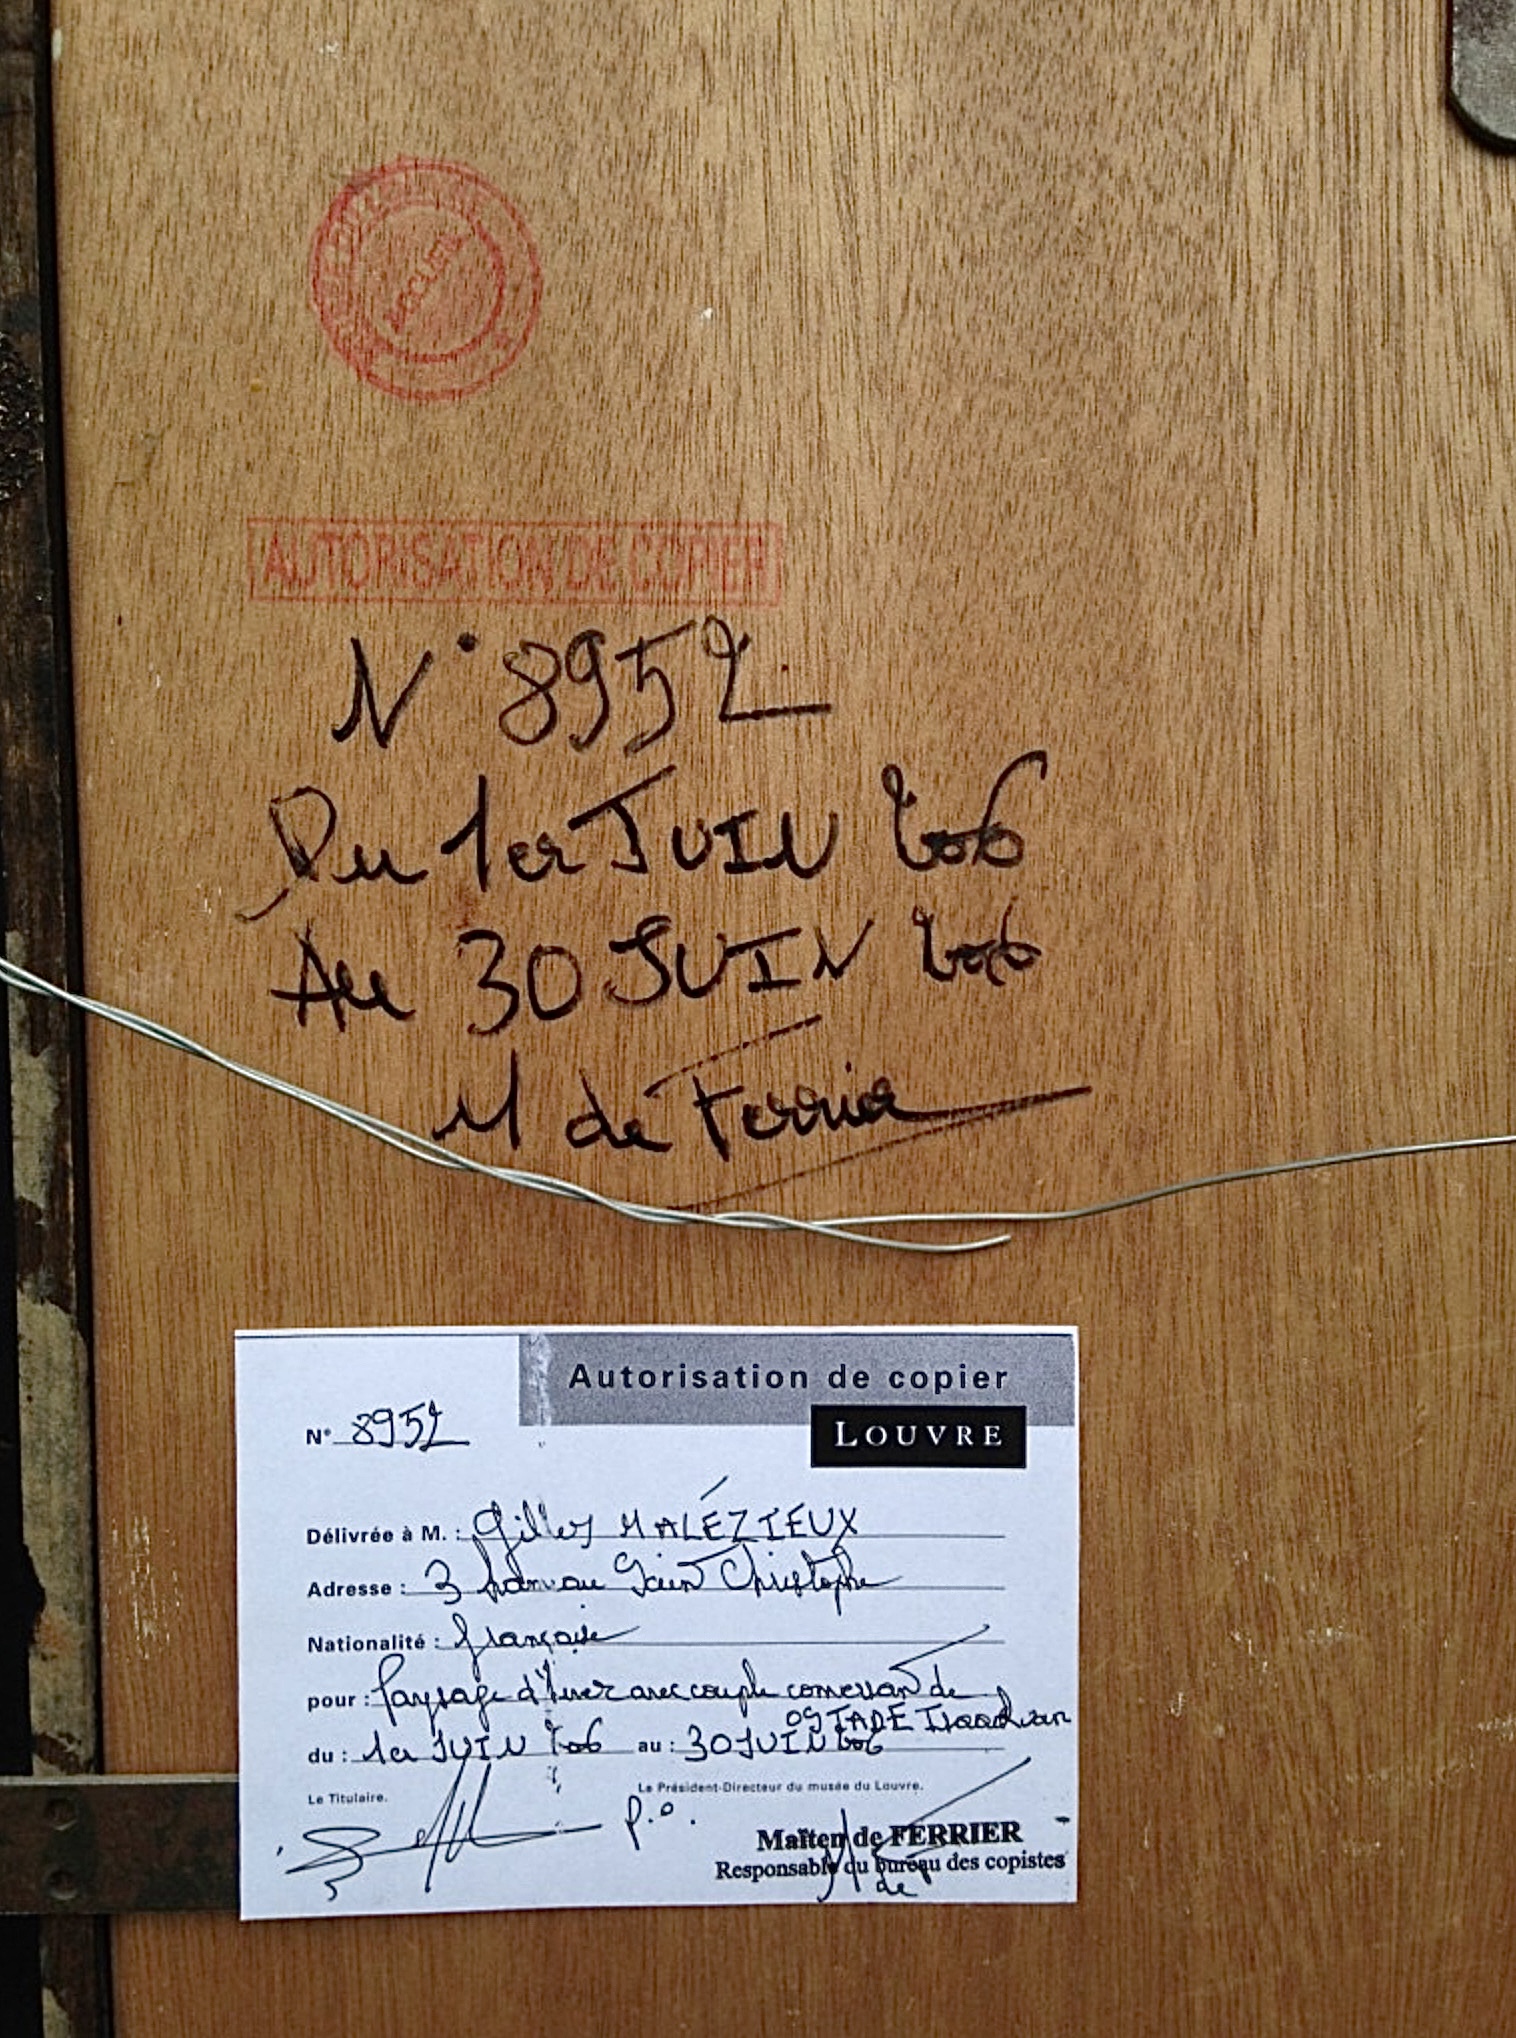 ACCUEIL
AUTORISATION DE COPIER
N° 8952
Du 1er JUIN 2006
Au 30 JUIN 2006
M de Ferrier
Autorisation de copier
LOUVRE
N° 8952
Délivrée à M. : Gilles MALÉZIEUX
Adresse : 3 hameau Saint Christophe
Nationalité : française
pour : Paysage d'hiver avec couple conversant de
OSTADE Isaac van
du : 1er JUIN 2006 au : 30 JUIN 2006
Le Titulaire. Le Président-Directeur du musée du Louvre.
P.O.
Maïten de FERRIER
Responsable du bureau des copistes